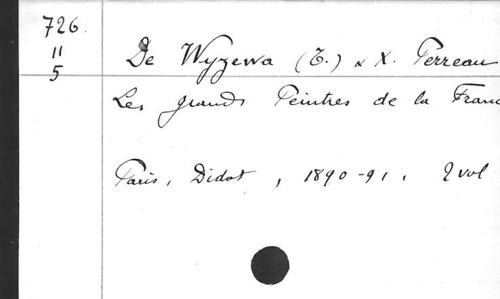 726.
11
5
De Wyzewa (T.) & X. Perreau
Les grands Peintres de la Franc
Paris, Didot, 1890-91. 2 vol